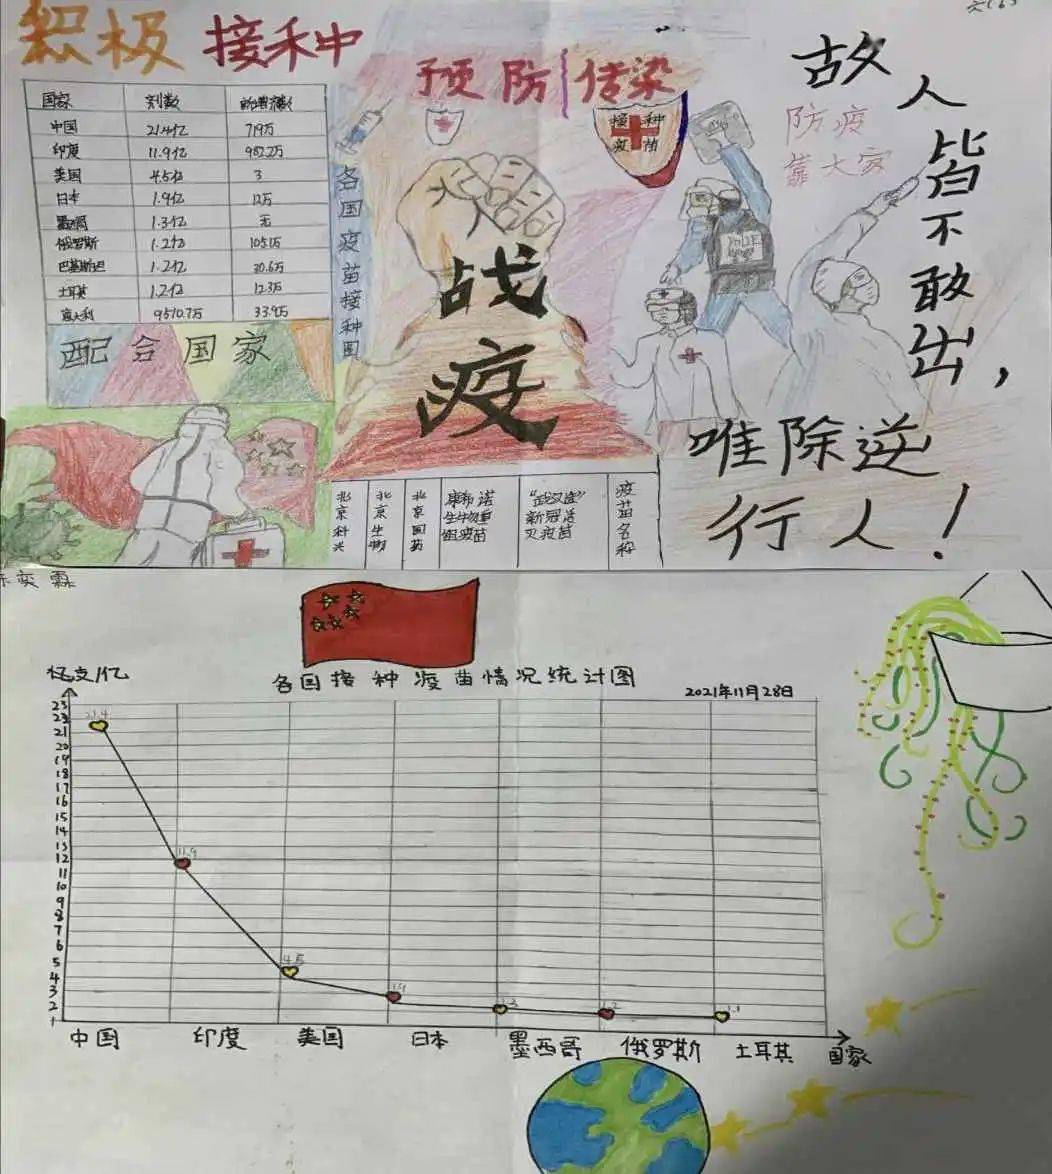 积极 接种
预防 传染
国家 剂数
中国 21.4亿 719万
印度 11.9亿 982.2万
美国 4.5亿 3
日本 1.9亿 12万
1.3亿 无
俄罗斯 1.2亿 105.1万
巴基斯坦 1.2亿 30.6万
土耳其 1.2亿 12.3万
意大利 9510.7万 33.9万
配合国家
各国疫苗接种图
接种
疫苗
众志成
战疫
POLICE
防疫
靠大家
故人皆不敢出，
唯除逆
行人！
北京科兴
北京生物
北京国药
康希诺
生物重
组疫苗
"武汉造"
新冠活
灭疫苗
疫苗名称
奕霖
亿支/亿
各国接种疫苗情况统计图
2021年11月28日
23
22
21
20
19
18
17
16
15
14
13
12
11
10
9
8
7
6
5
4
3
2
1
21.4
11.9
4.5
1.9
1.3
1.2
1.1
中国 印度 美国 日本 墨西哥 俄罗斯 土耳其 国家